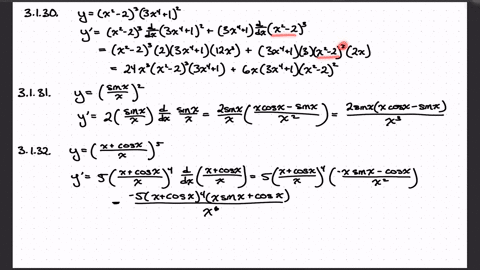 3.1.30. y=(x²-2)³(3x⁴+1)²
y'=(x²-2)³ d/dx (3x⁴+1)² + (3x⁴+1)² d/dx (x²-2)³
=(x²-2)³(2)(3x⁴+1)(12x³) + (3x⁴+1)(3)(x²-2)²(2x)
= 24x³(x²-2)³(3x⁴+1) + 6x(3x⁴+1)(x²-2)²
3.1.31. y=(sinx/x)²
y'=2(sinx/x) d/dx sinx/x = 2sinx/x (xcosx-sinx/x²) = 2sinx(xcosx-sinx)/x³
3.1.32. y=(x+cosx/x)⁵
y'=5(x+cosx/x)⁴ d/dx (x+cosx/x) = 5(x+cosx/x)⁴(-xsinx-cosx/x²)
= -5(x+cosx)⁴(xsinx+cosx)/x⁶